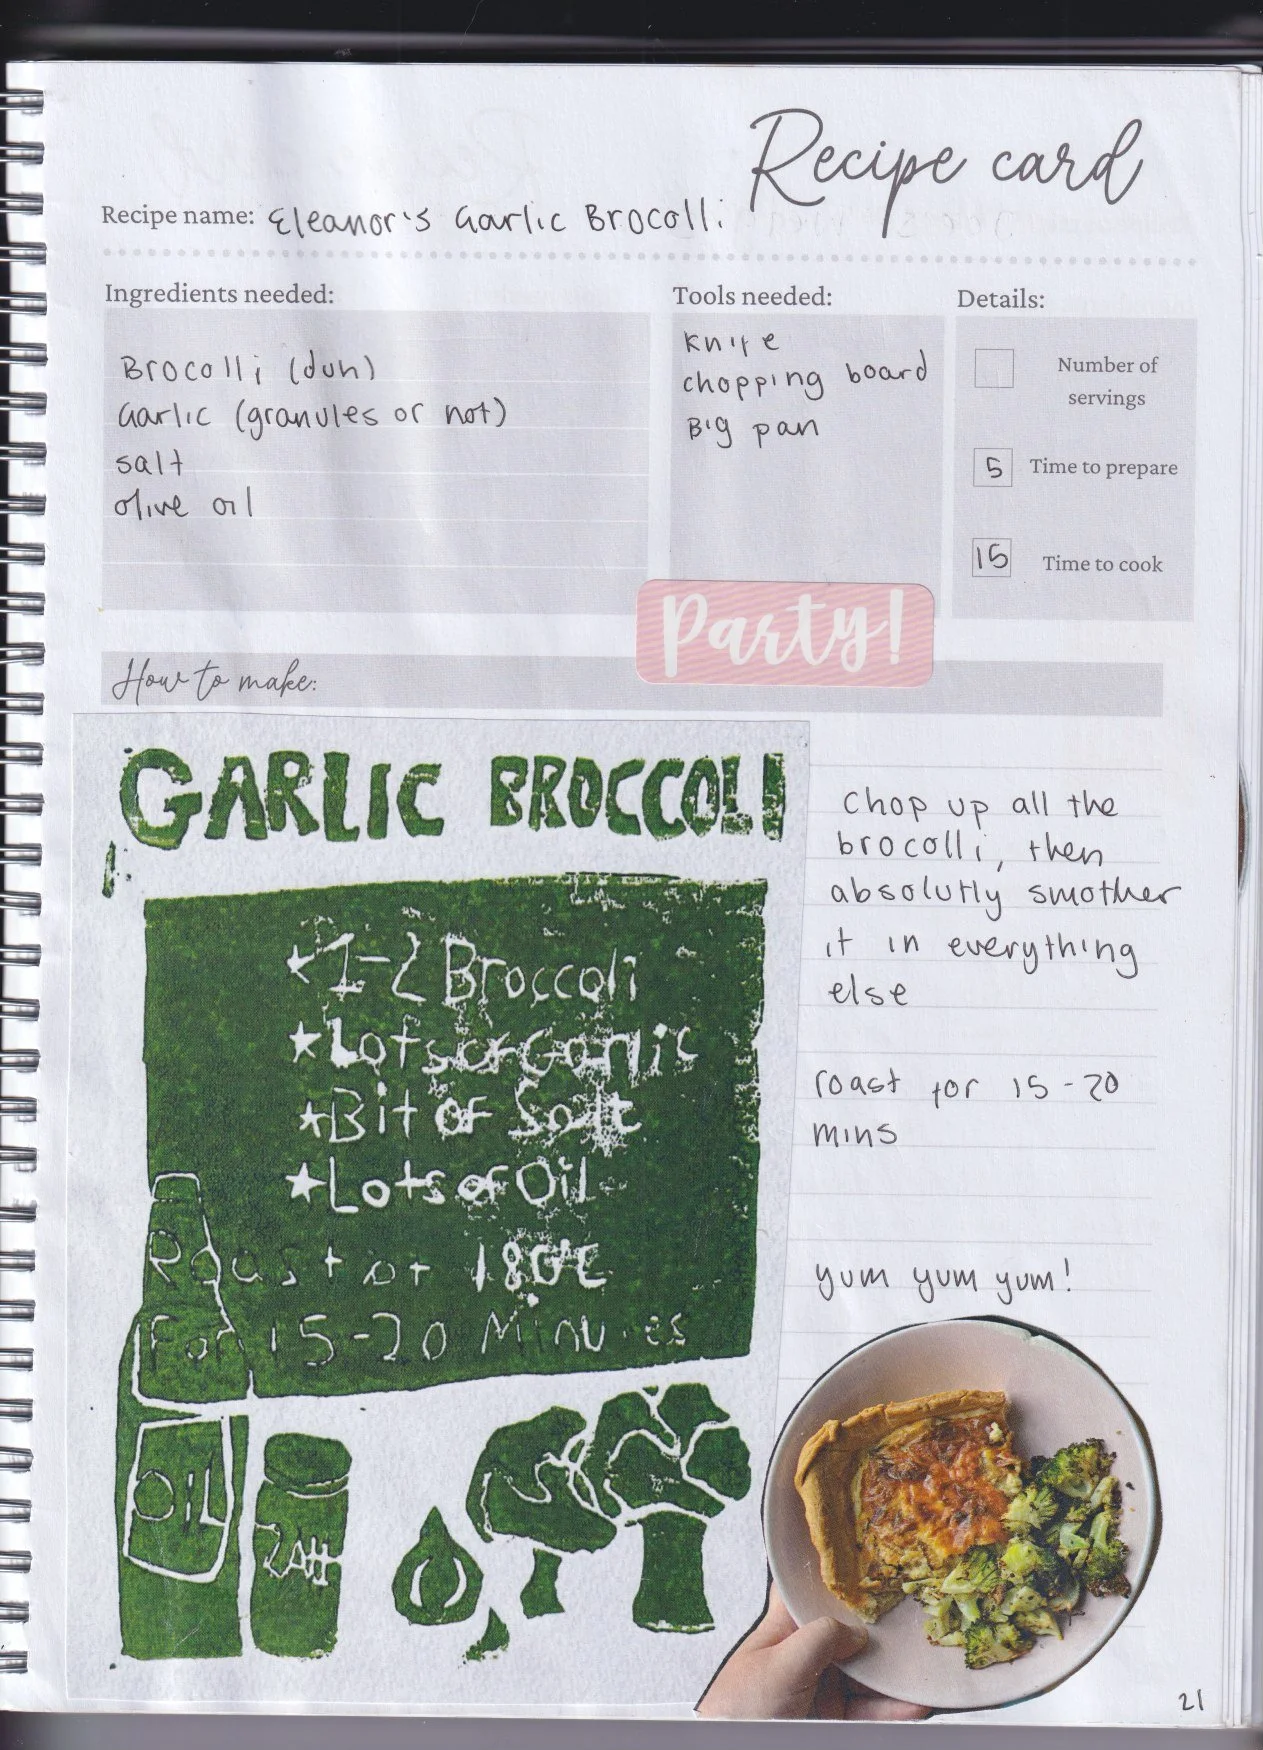 Recipe card
Recipe name: Eleanor's Garlic Brocolli
Ingredients needed:
Brocolli (duh)
Garlic (granules or not)
salt
olive oil
Tools needed:
Knife
chopping board
Big pan
Details:
Number of
servings
5 Time to prepare
15 Time to cook
Party!
How to make:
GARLIC BROCCOLI
1-2 Broccoli
Lots of Garlic
Bit of Salt
Lots of Oil
Roast at 180°C
For 15-20 Minutes
OIL
chop up all the
brocolli, then
absolutly smother
it in everything
else
roast for 15-20
mins
yum yum yum!
21